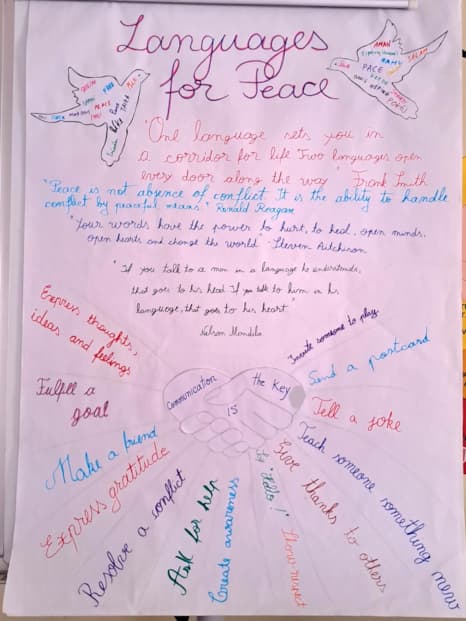 Languages
for Peace
AMAN
SALAM
PACE
PEACE
"One language sets you in
a corridor for life. Two languages open
every door along the way" Frank Smith
"Peace is not absence of conflict. It is the ability to handle
conflict by peaceful means." Ronald Reagan
"Your words have the power to hurt, to heal, open minds,
open hearts and change the world" Steven Aitchison
"If you talk to a man in a language he understands,
that goes to his head. If you talk to him in his
language, that goes to his heart."
Nelson Mandela
Express thoughts,
ideas and feelings
Fulfill a
goal
Make a friend
Express gratitude
Resolve a conflict
Ask for help
Create awareness
Communication
IS
the key
Say "Hello!"
Show respect
Give thanks to others
Teach someone something new
Tell a joke
Send a postcard
someone to play